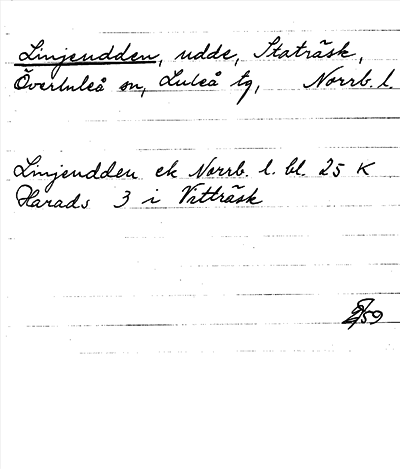 Linjeudden, udde, Staträsk,
Överluleå sn, Luleå tg, Norrb. l.
Linjeudden ek Norrb. l. bl. 25 K
Harads 3 i Vitträsk
59